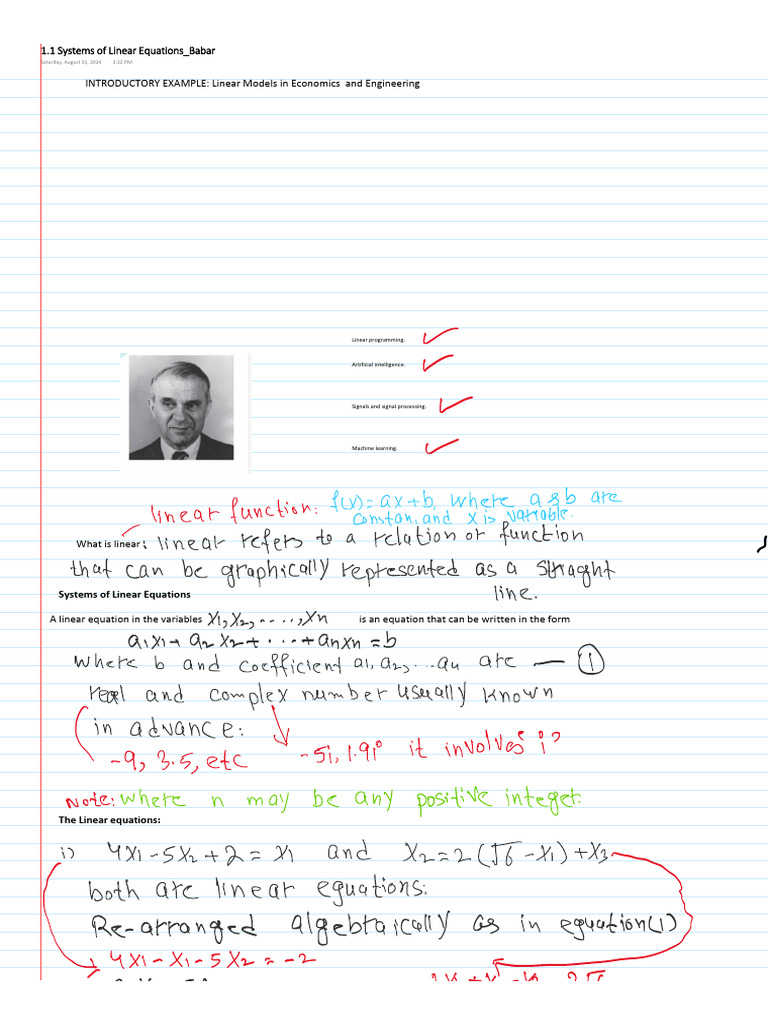 1.1 Systems of Linear Equations_Babar
Saturday, August 31, 2024 3:22 PM
INTRODUCTORY EXAMPLE: Linear Models in Economics and Engineering
Linear programming.
Artificial intelligence.
Signals and signal processing.
Machine learning.
linear function: f(x)= ax+b, where a & b are
constan, and x is variable.
What is linear: linear refers to a relation or function
that can be graphically represented as a straght
line.
Systems of Linear Equations
A linear equation in the variables x1, x2, ....., xn is an equation that can be written in the form
a1x1+ a2x2+ ... + anxn = b
where b and coefficient a1, a2, ... an are — ①
real and complex number usually known
in advance:
-9, 3.5, etc -5i, 1.9i it involves i?
Note: where n may be any positive integer.
The Linear equations:
i) 4x1-5x2+2 = x1 and x2=2(√6-x1)+x3
both are linear equations:
Re-arranged algebraically as in equation(1)
4x1-x1-5x2 = -2